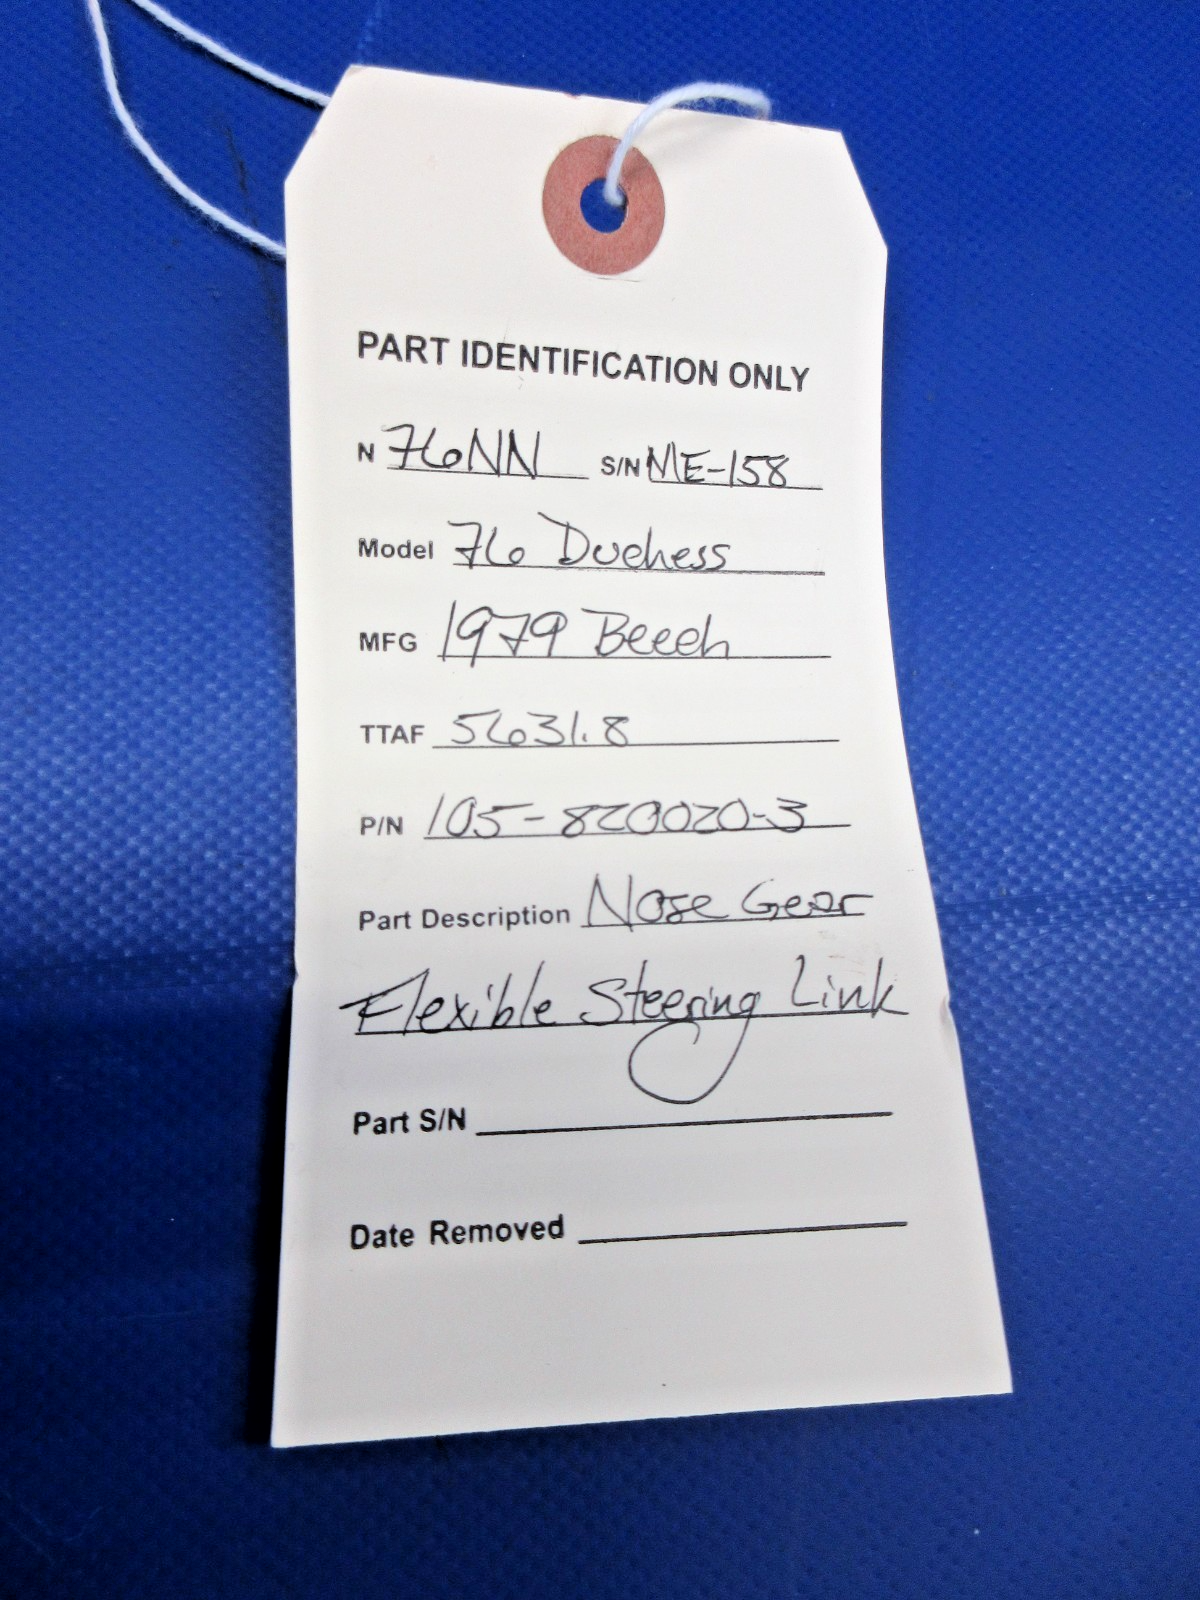 PART IDENTIFICATION ONLY
N 76NN S/N ME-158
Model 76 Duchess
MFG 1979 Beech
TTAF 5631.8
P/N 105-820020-3
Part Description Nose Gear
Flexible Steering Link
Part S/N
Date Removed